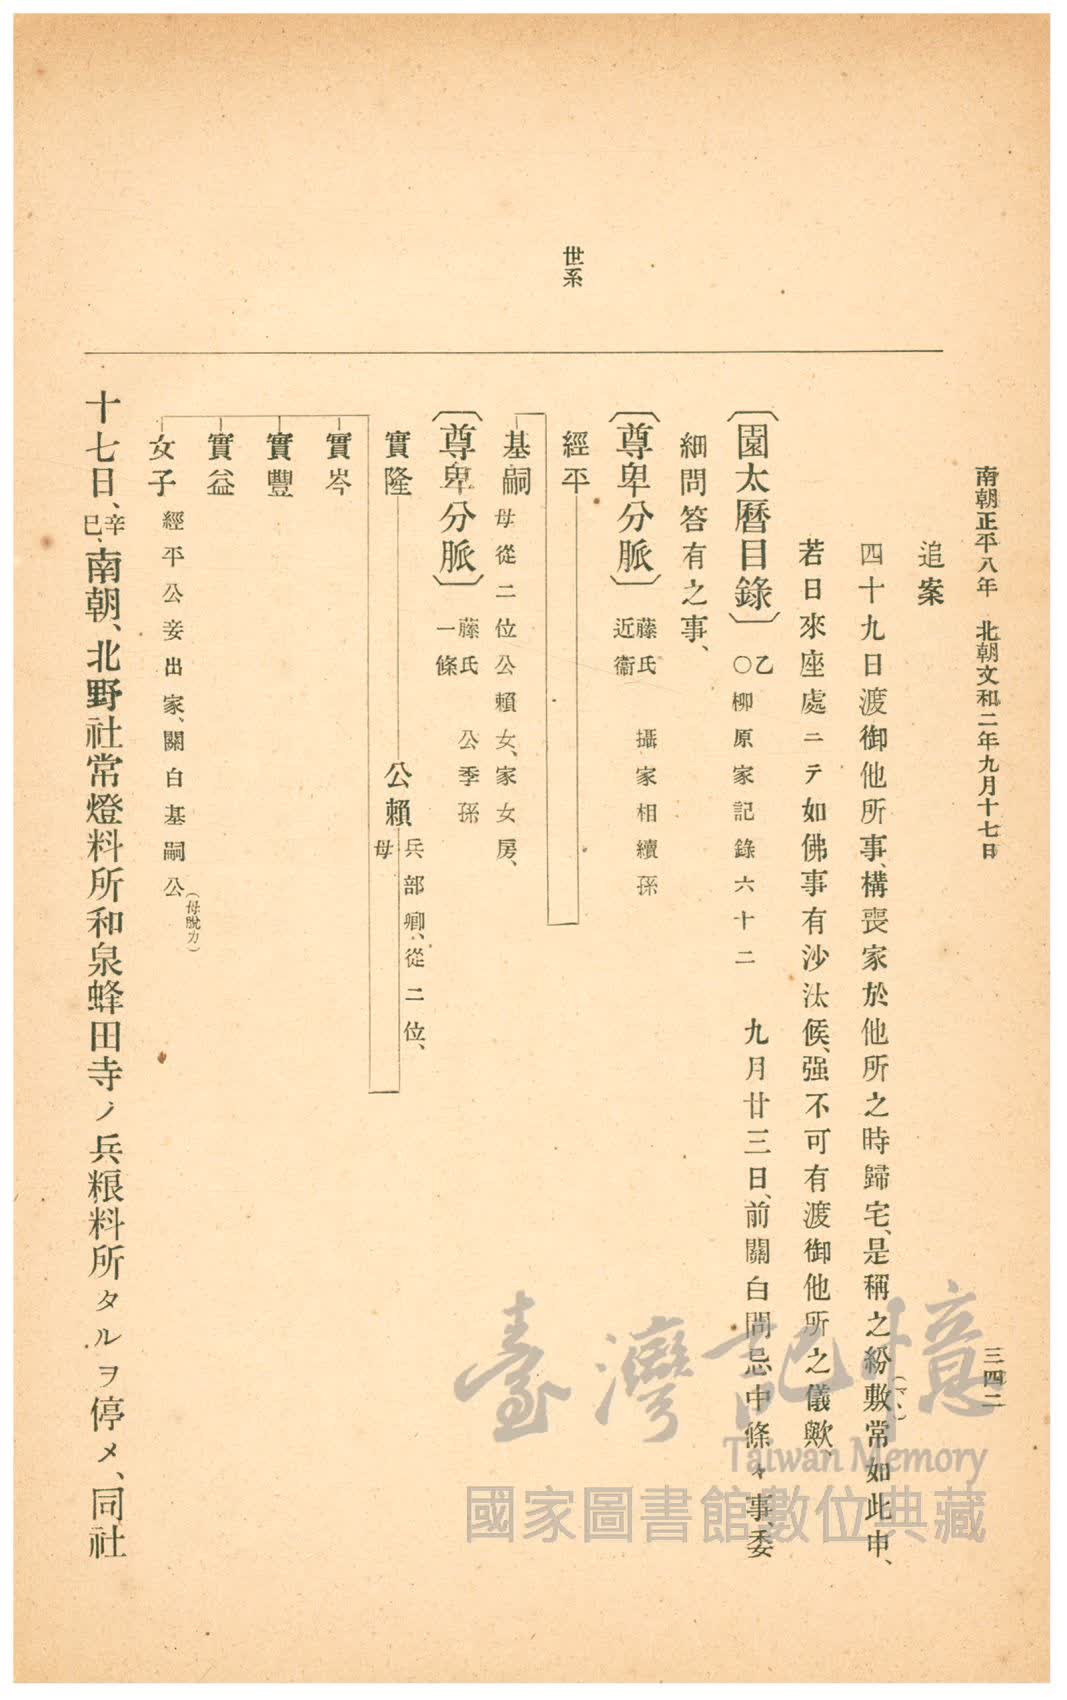 南朝正平八年　北朝文和二年九月十七日
三四二
世系
追案
四十九日渡御他所事、構喪家於他所之時歸宅、是稱之紛敷常如此申、
(マヽ)
若日來座處ニテ如佛事有沙汰候、强不可有渡御他所之儀歟、
〔園太曆目錄〕乙　○柳原家記錄六十二　九月廿三日、前關白問忌中條々事、委
細問答有之事、
〔尊卑分脈〕藤氏　攝家相續孫
近衞
經平
基嗣　母從二位公賴女、家女房、
〔尊卑分脈〕藤氏　公季孫
一條
實隆
公賴　兵部卿、從二位、
母
實岑
實豐
實益
女子　經平公妾出家、關白基嗣公
(母脫カ)
十七日、辛巳、南朝、北野社常燈料所和泉蜂田寺ノ兵粮料所タルヲ停メ、同社
臺灣記憶
Taiwan Memory
國家圖書館數位典藏